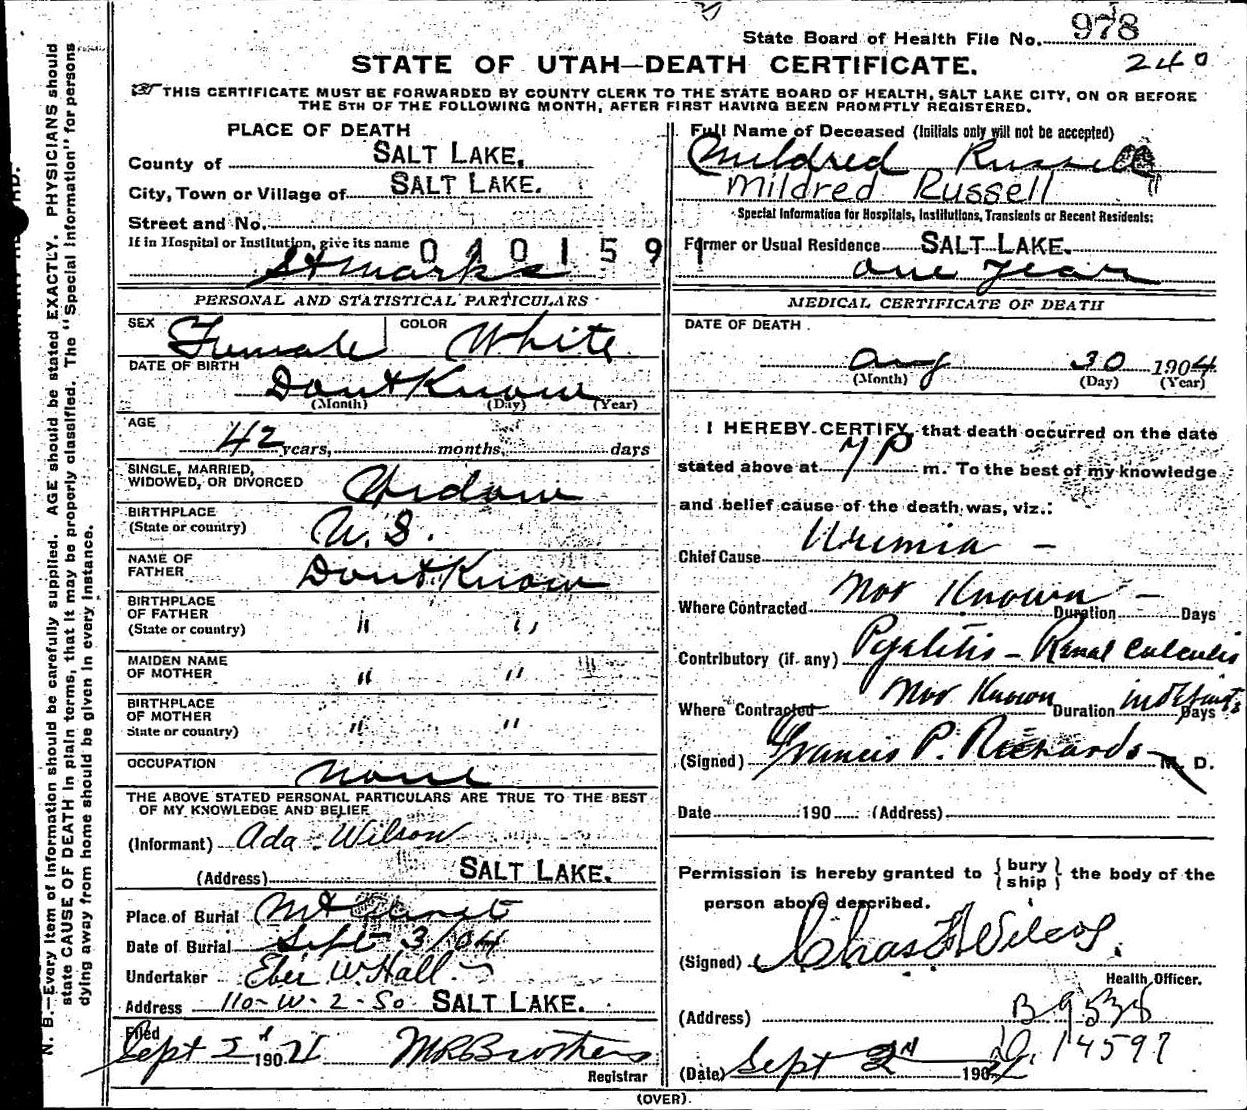 State Board of Health File No. 978
240
STATE OF UTAH—DEATH CERTIFICATE.
THIS CERTIFICATE MUST BE FORWARDED BY COUNTY CLERK TO THE STATE BOARD OF HEALTH, SALT LAKE CITY, ON OR BEFORE
THE 5TH OF THE FOLLOWING MONTH, AFTER FIRST HAVING BEEN PROMPTLY REGISTERED.
PLACE OF DEATH
County of SALT LAKE.
City, Town or Village of SALT LAKE.
Street and No.
If in Hospital or Institution, give its name 0401591
St Marks
PERSONAL AND STATISTICAL PARTICULARS
SEX Female COLOR White
DATE OF BIRTH Dont Know
(Month) (Day) (Year)
AGE 42 years, months, days
SINGLE, MARRIED,
WIDOWED, OR DIVORCED Widow
BIRTHPLACE
(State or country) U.S.
NAME OF
FATHER Dont Know
BIRTHPLACE
OF FATHER
(State or country) " "
MAIDEN NAME
OF MOTHER " "
BIRTHPLACE
OF MOTHER
State or country) " "
OCCUPATION none
THE ABOVE STATED PERSONAL PARTICULARS ARE TRUE TO THE BEST
OF MY KNOWLEDGE AND BELIEF
(Informant) Ada Wilson
(Address) SALT LAKE.
Place of Burial Mt Olivet
Date of Burial Sept 3/04
Undertaker Eber W. Hall
Address 110-W-2-So SALT LAKE.
Filed
Sept 2 190 MRC Brothers
Registrar
Full Name of Deceased (Initials only will not be accepted)
Mildred Russell
Mildred Russell
Special Information for Hospitals, Institutions, Transients or Recent Residents:
Former or Usual Residence SALT LAKE.
one year
MEDICAL CERTIFICATE OF DEATH
DATE OF DEATH
Aug 30 1904
(Month) (Day) (Year)
I HEREBY CERTIFY, that death occurred on the date
stated above at 7 P m. To the best of my knowledge
and belief cause of the death was, viz.:
Chief Cause Uremia —
Where Contracted Not Known Duration — Days
Contributory (if any) Pyelitis — Renal Calculis
Where Contracted Not Known Duration indefinite Days
(Signed) Francis P. Richards M. D.
Date 190 (Address)
Permission is hereby granted to {bury
ship} the body of the
person above described.
(Signed) Chas F Wilcox.
Health Officer.
(Address) B 9538
D. 14597
(Date) Sept 2nd 190
(OVER).
N. B.—Every item of Information should be carefully supplied. AGE should be stated EXACTLY. PHYSICIANS should
state CAUSE OF DEATH in plain terms, that it may be properly classified. The "Special Information" for persons
dying away from home should be given in every instance.